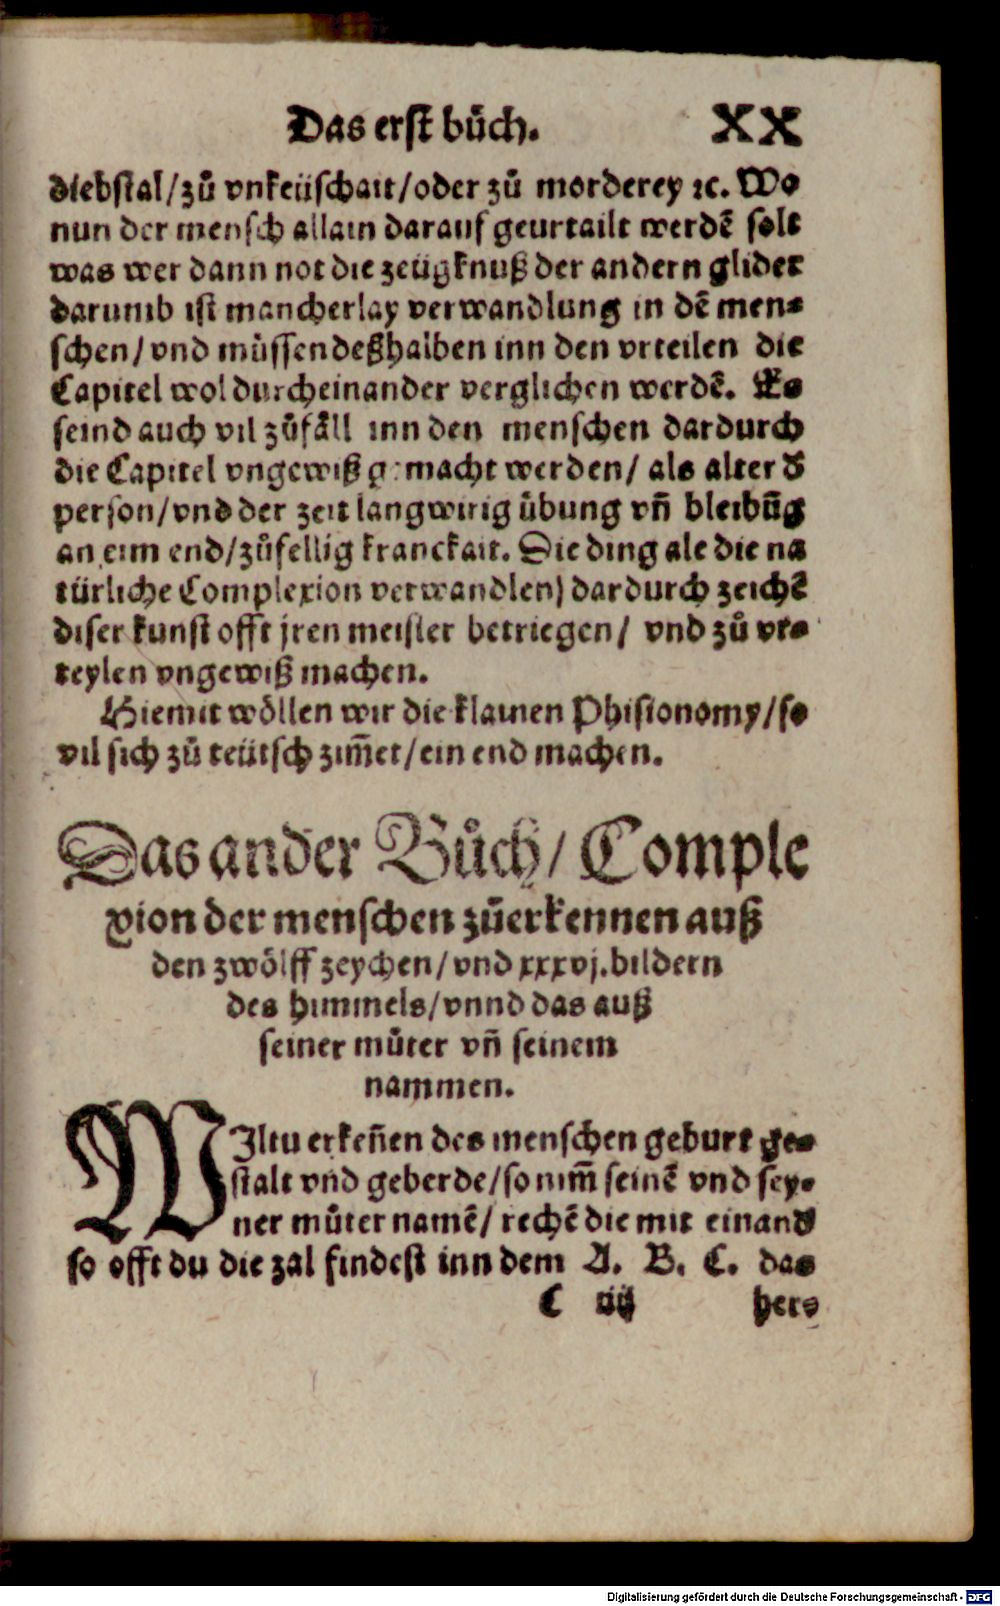 Das erst bůch. XX
diebstal/zů vnkeüschait/oder zů morderey ꝛc. Wo
nun der mensch allain darauf geurtailt werdē solt
was wer dann not die zeügknuß der andern glider
darumb ist mancherlay verwandlung in dē men-
schen/vnd müssen deßhalben inn den vrteilen die
Capitel wol durcheinander verglichen werdē. Es
seind auch vil zůfåll inn den menschen dardurch
die Capitel vngewiß gemacht werden/ als alter d̕
person/vnd der zeit langwirig übung vn̄ bleibūg
an eim end/zůfellig kranckait. Die ding ale die na
türliche Complexion verwandlen) dardurch zeichē
diser kunst offt jren meister betriegen/ vnd zů vr-
teylen vngewiß machen.
Hiemit wöllen wir die klainen Phisionomy/so
vil sich zů teütsch zim̄et/ein end machen.
Das ander Bůch/ Comple
xion der menschen zůerkennen auß
den zwölff zeychen/vnd xxxvj.bildern
des himmels/vnnd das auß
seiner můter vn̄ seinem
nammen.
WIltu erken̄en des menschen geburt ge-
stalt vnd geberde/so nim̄ seinē vnd sey-
ner můter namē/ rechē die mit einand̕
so offt du die zal findest inn dem A. B. C. das
C iiij hers
Digitalisierung gefördert durch die Deutsche Forschungsgemeinschaft - DFG